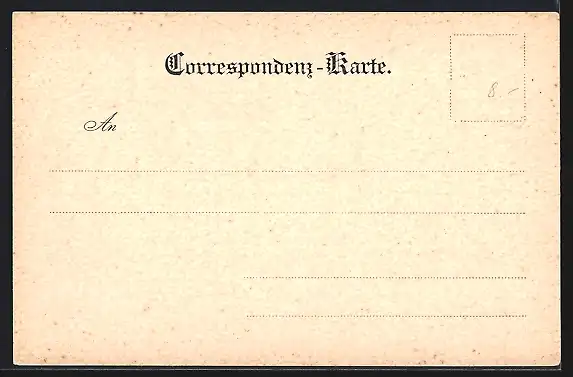 Correspondenz-Karte.
8.-
An